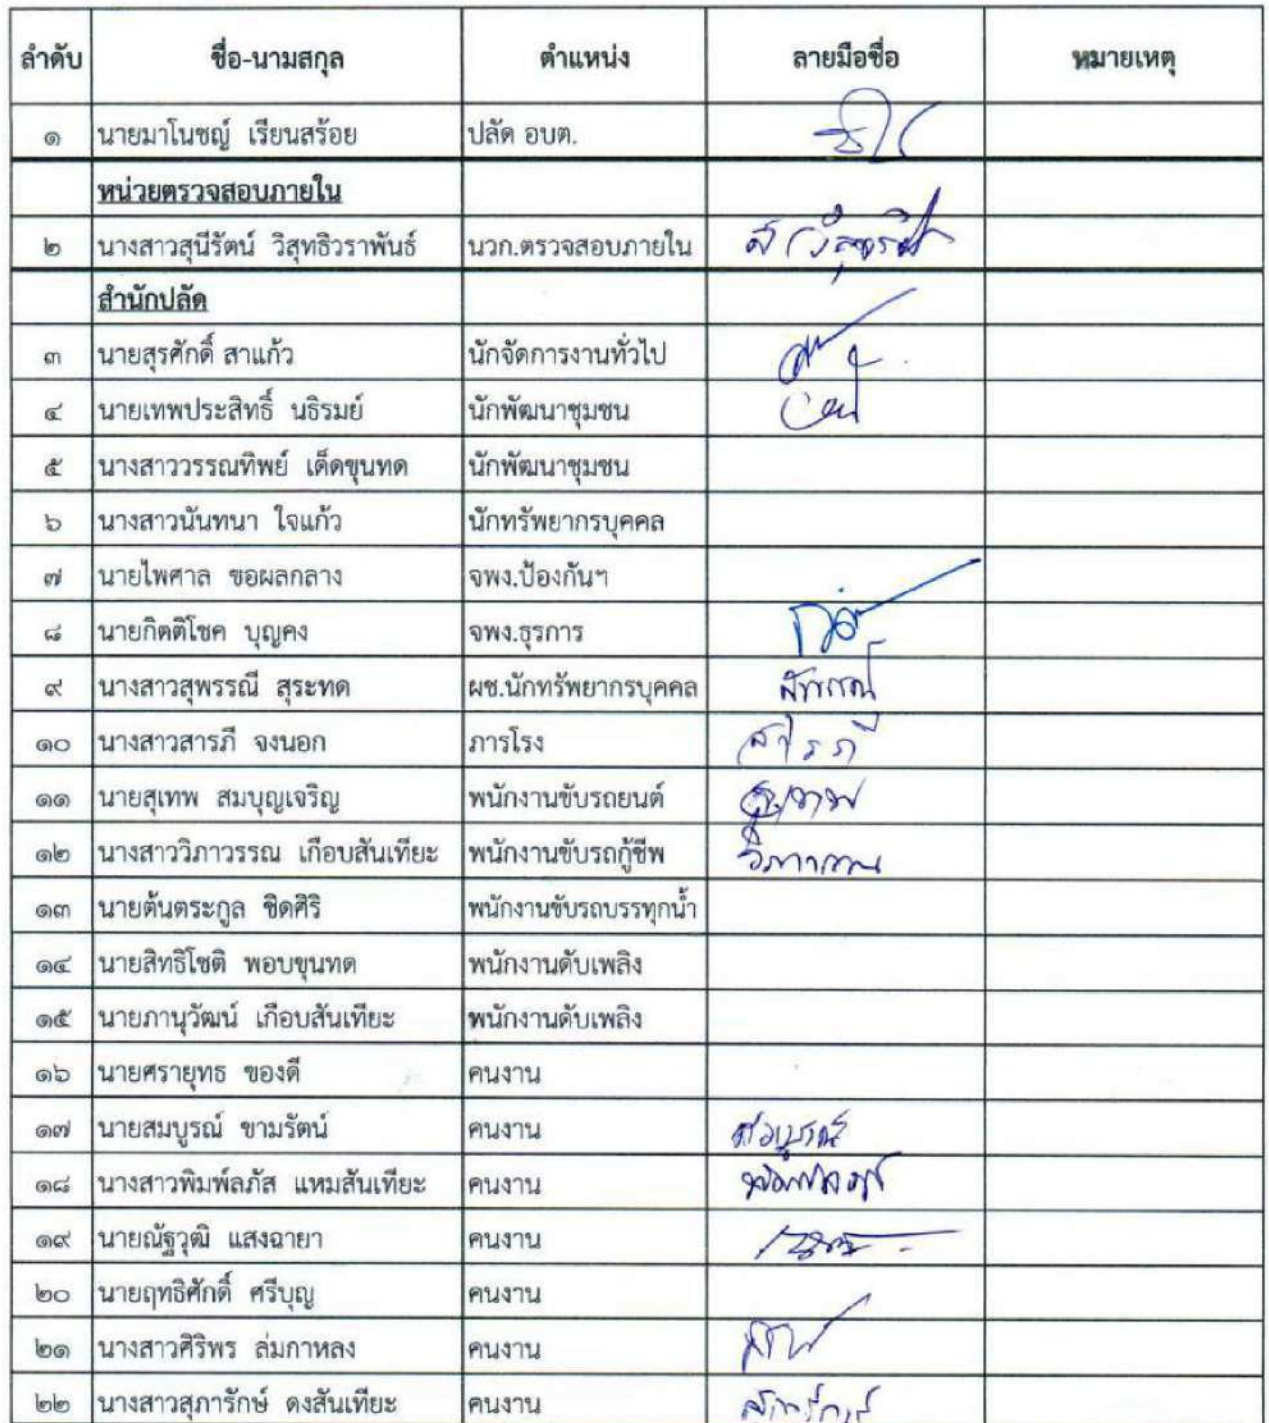 ลำดับ ชื่อ-นามสกุล ตำแหน่ง ลายมือชื่อ หมายเหตุ
๑ นายมาโนชญ์ เรียนสร้อย ปลัด อบต.
หน่วยตรวจสอบภายใน
๒ นางสาวสุนีรัตน์ วิสุทธิวราพันธ์ นวก.ตรวจสอบภายใน
สำนักปลัด
๓ นายสุรศักดิ์ สาแก้ว นักจัดการงานทั่วไป
๔ นายเทพประสิทธิ์ นธิรมย์ นักพัฒนาชุมชน
๕ นางสาววรรณทิพย์ เด็ดขุนทด นักพัฒนาชุมชน
๖ นางสาวนันทนา ใจแก้ว นักทรัพยากรบุคคล
๗ นายไพศาล ขอผลกลาง จพง.ป้องกันฯ
๘ นายกิตติโชค บุญคง จพง.ธุรการ
๙ นางสาวสุพรรณี สุระทด ผช.นักทรัพยากรบุคคล
๑๐ นางสาวสารภี จงนอก ภารโรง สารภี
๑๑ นายสุเทพ สมบุญเจริญ พนักงานขับรถยนต์
๑๒ นางสาววิภาวรรณ เกือบสันเทียะ พนักงานขับรถกู้ชีพ วิภาวรรณ
๑๓ นายต้นตระกูล ชิดศิริ พนักงานขับรถบรรทุกน้ำ
๑๔ นายสิทธิโชติ พอบขุนทด พนักงานดับเพลิง
๑๕ นายภานุวัฒน์ เกือบสันเทียะ พนักงานดับเพลิง
๑๖ นายศรายุทธ ของดี คนงาน
๑๗ นายสมบูรณ์ ขามรัตน์ คนงาน สมบูรณ์
๑๘ นางสาวพิมพ์ลภัส แหมสันเทียะ คนงาน
๑๙ นายณัฐวุฒิ แสงฉายา คนงาน
๒๐ นายฤทธิศักดิ์ ศรีบุญ คนงาน
๒๑ นางสาวศิริพร ล่มกาหลง คนงาน
๒๒ นางสาวสุภารักษ์ ดงสันเทียะ คนงาน